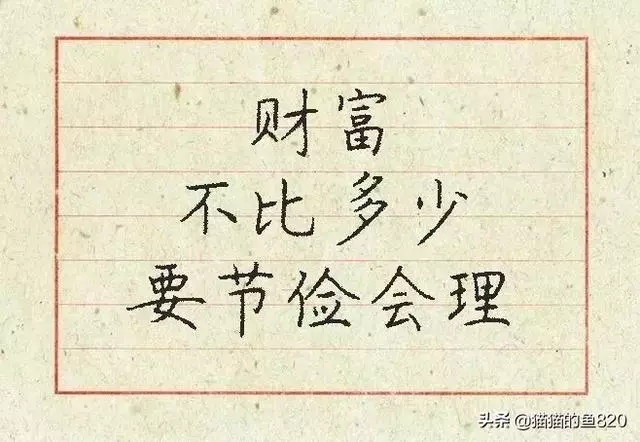 财富
不比多少
要节俭会理
头条 @猫猫的鱼820